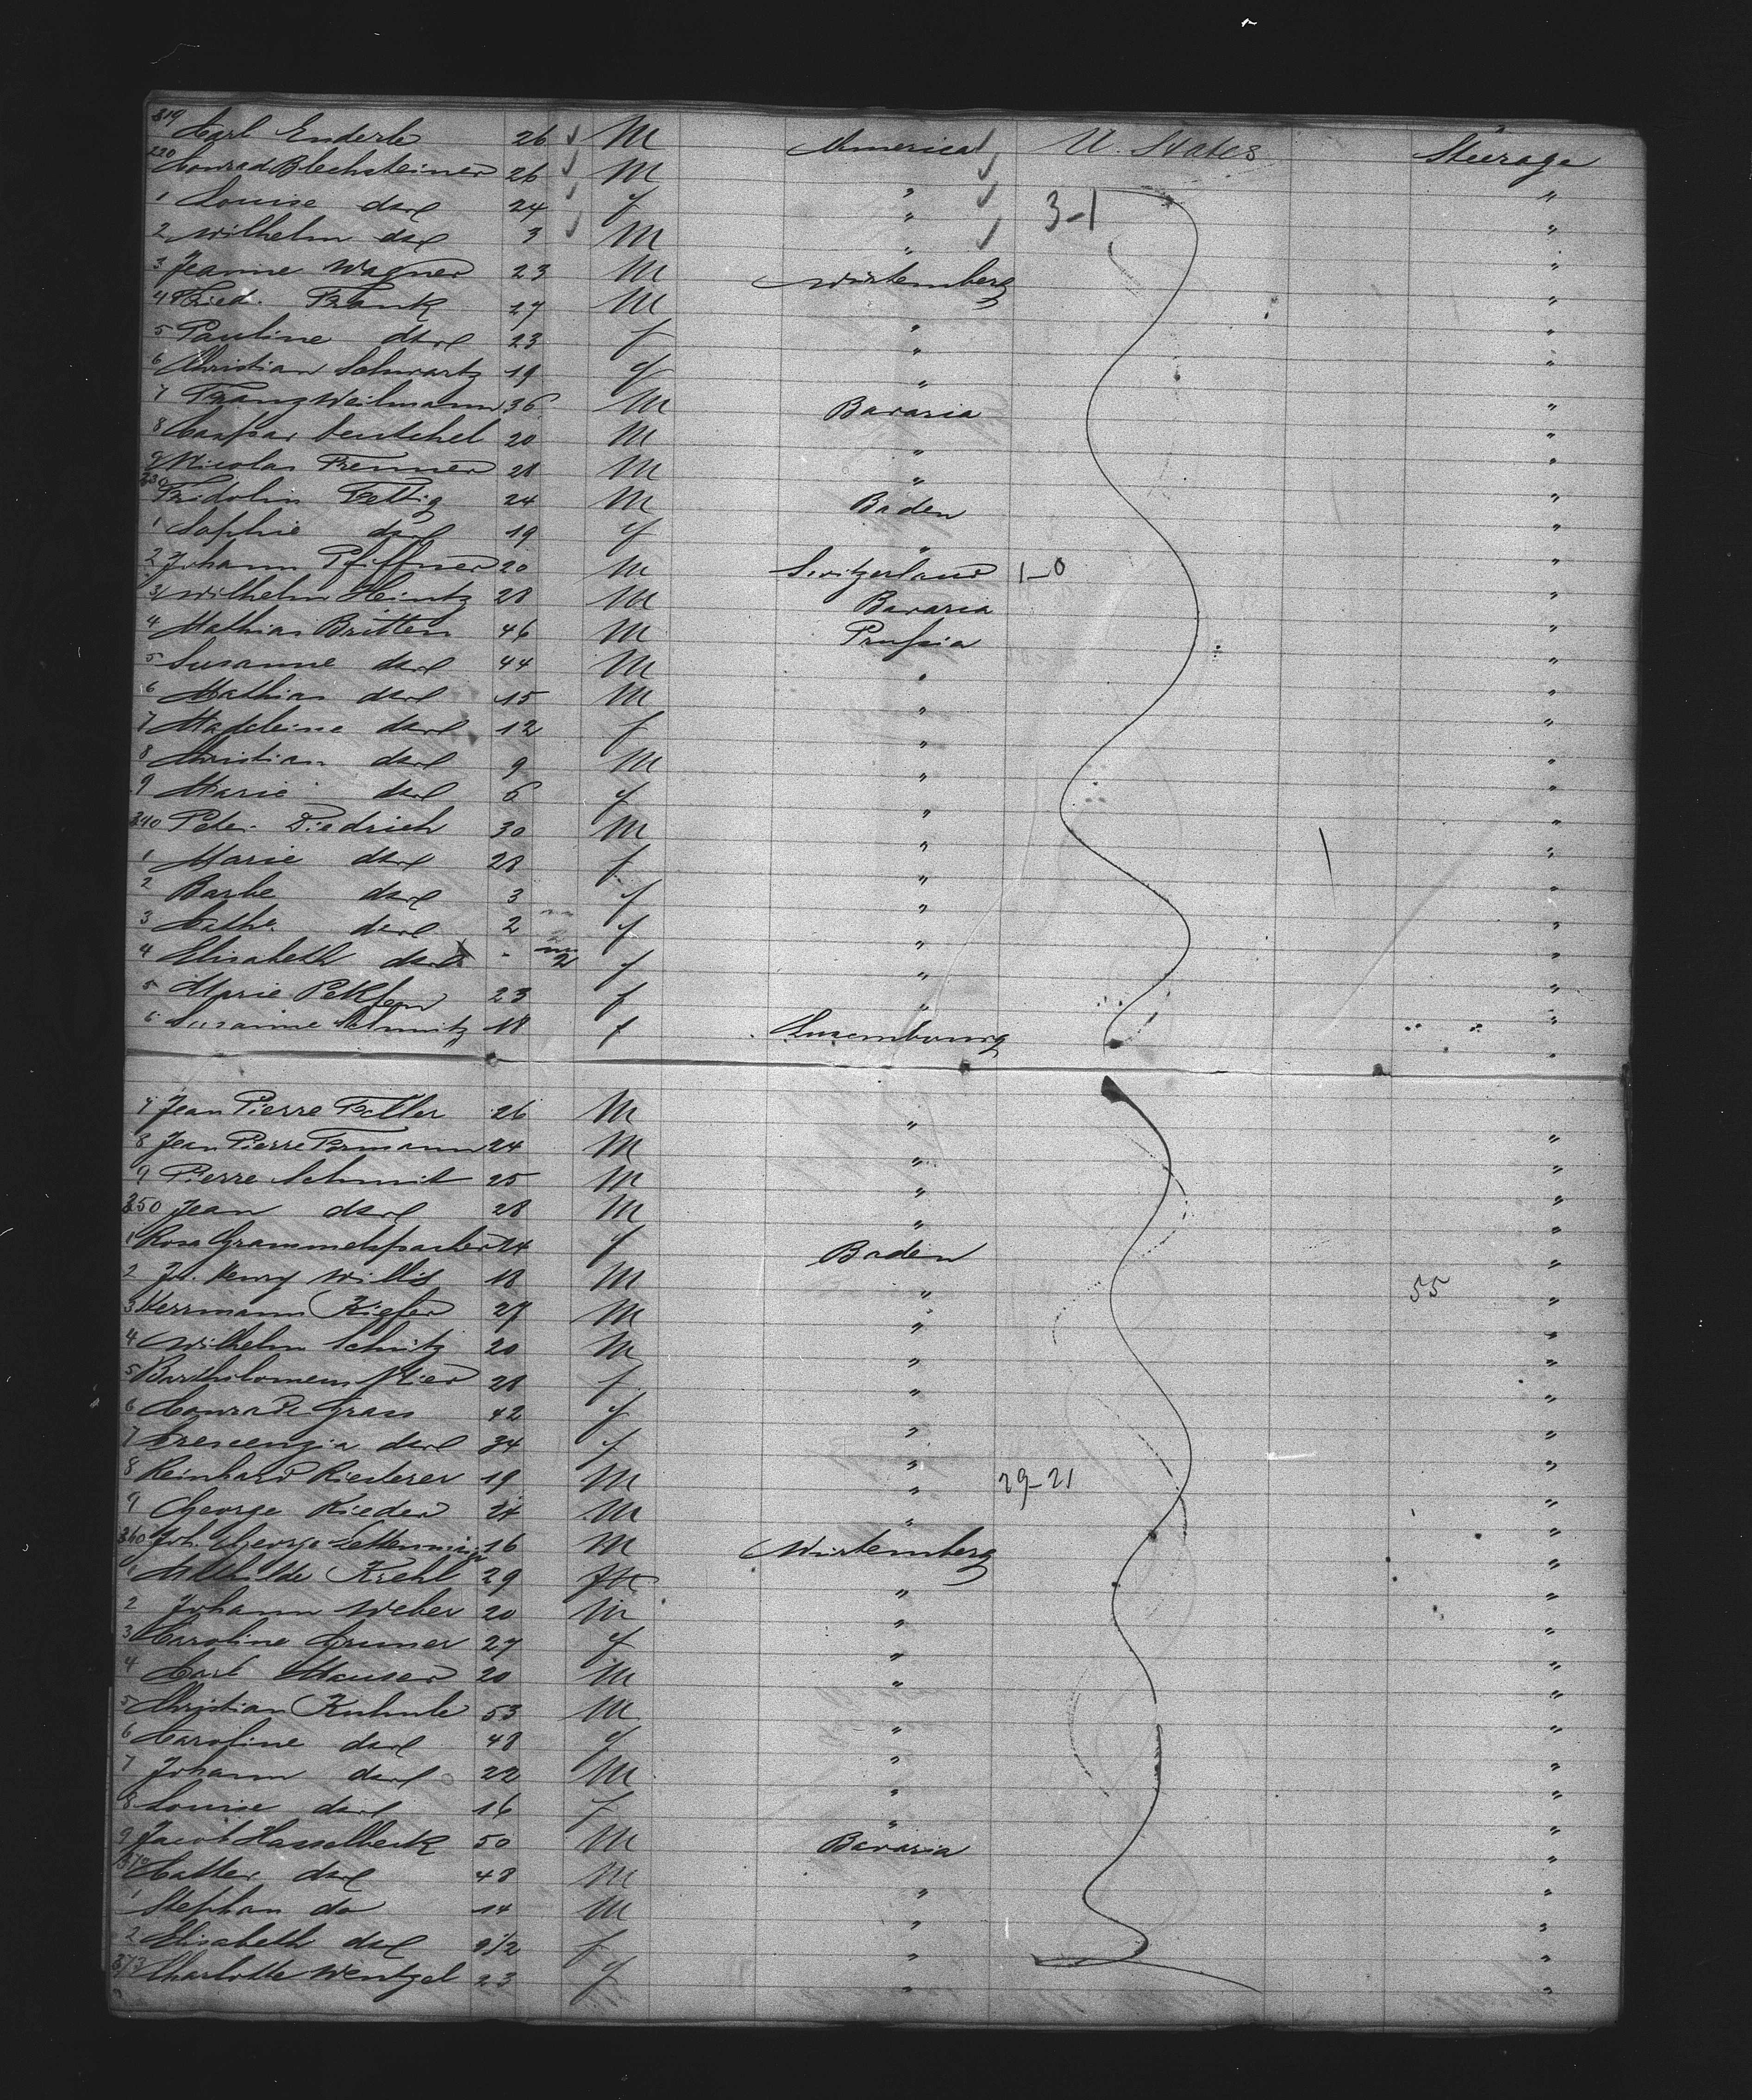 319 Carl Enderle 26 M America U. States Steerage
220 Conrad Blechsteiner 26 M " "
1 Louise dsrl 24 f " 3-1 "
2 Wilhelm dsrl 3 M " "
3 Jeanne Wagner 23 M Wirtemberg "
4 Fried. Frank 27 M "
5 Pauline dsrl 23 f " "
6 Christian Schwartz 19 f " "
7 Franz Weilmann 36 M Bavaria "
8 Caspar 20 M " "
9 Nicolas Brenner 28 M " "
330 Fridolin Fettig 24 M Baden "
1 Sophie dsrl 19 f " "
2 Johann Pfiffner 20 M Switzerland 1-0 "
3 Wilhelm Heintz 28 M Bavaria "
4 Mathias Britten 46 M Prussia "
5 Susanne dsrl 44 M " "
6 Mathias dsrl 15 M " "
7 Madeleine dsrl 12 f " "
8 Christian dsrl 9 M " "
9 Marie dsrl 6 f " "
340 Peter Diedrich 30 M " "
1 Marie dsrl 28 f " "
2 Barbe dsrl 3 f " "
3 Cathe dsrl 2 f " "
4 Elisabeth dsrl - 2 f " "
5 Marie 23 f " "
6 Susanne Schmitz 18 f Luxembourg "
7 Jean Pierre Feller 26 M " "
8 Jean Pierre 24 M " "
9 Pierre Schmit 25 M " "
350 Jean dsrl 28 M " "
1 Rosa Grammelspacher 24 f Baden "
2 Jos. Henry Willis 18 M " 55
3 Herrmann Kiefer 27 M " "
4 Wilhelm Schmitz 20 M " "
5 Bartholomeus 28 f " "
6 Conrad Grass 42 f " "
7 Crescenzia dsrl 34 f " "
8 Reinhard Riesterer 19 M " 29-21 "
9 George Rieder 24 M " "
360 Joh. George 16 M Wirtemberg "
1 Mathilde Krehl 29 f " "
2 Johann Weber 20 M " "
3 Caroline Gruner 27 f " "
4 Carl Mauser 20 M "
5 Christian Kuhnle 53 M " "
6 Caroline dsrl 48 f " "
7 Johann dsrl 22 M " "
8 Louise dsrl 16 f " "
9 Jacob Hasselbeck 50 M Bavaria "
370 dsrl 48 M " "
1 Stephan do 14 M " "
2 Elisabeth dsrl 9 1/2 f " "
373 Charlotte Wentzel 23 f " "